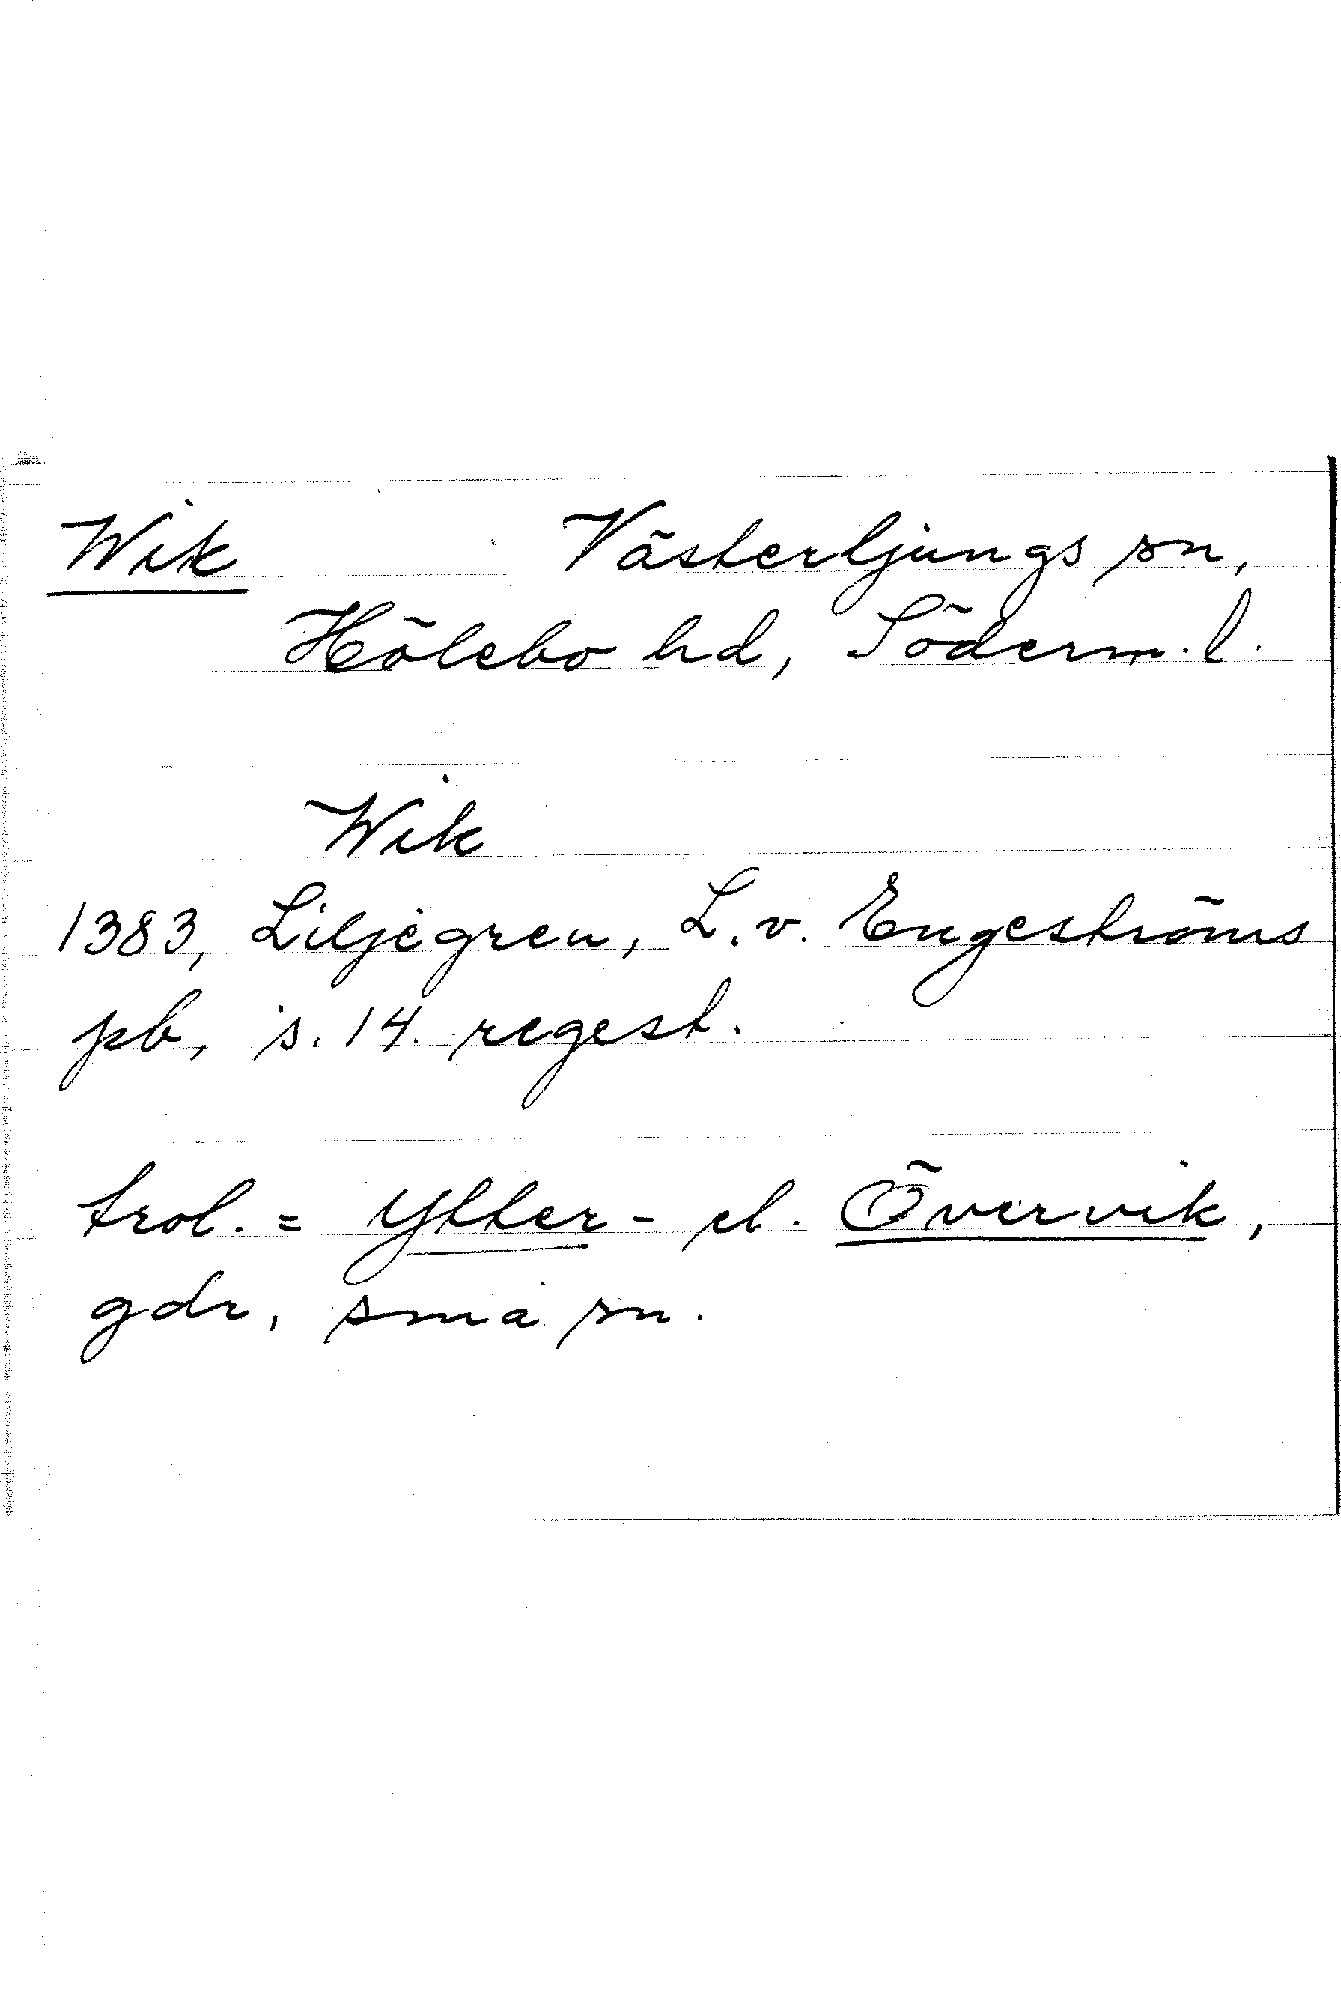 Wik Västerljungs sn,
Hölebo hd, Söderm. l.
Wik
1383, Liljegren, L. v. Engeströms
pb, s. 14. regest.
trol. = Ytter- el. Övervik,
gdr, sma sn.